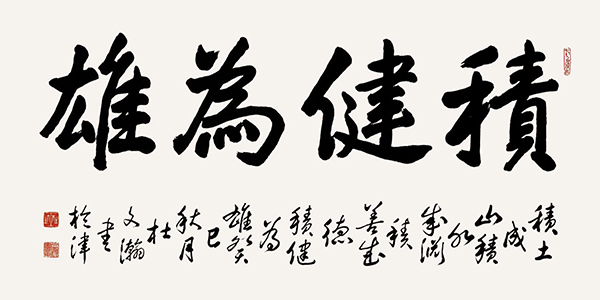 積健為雄
積土
成
山積
水
成渊
積
善成
德
積健
為
雄癸
巳
秋月
杜
文瀚
書
於津